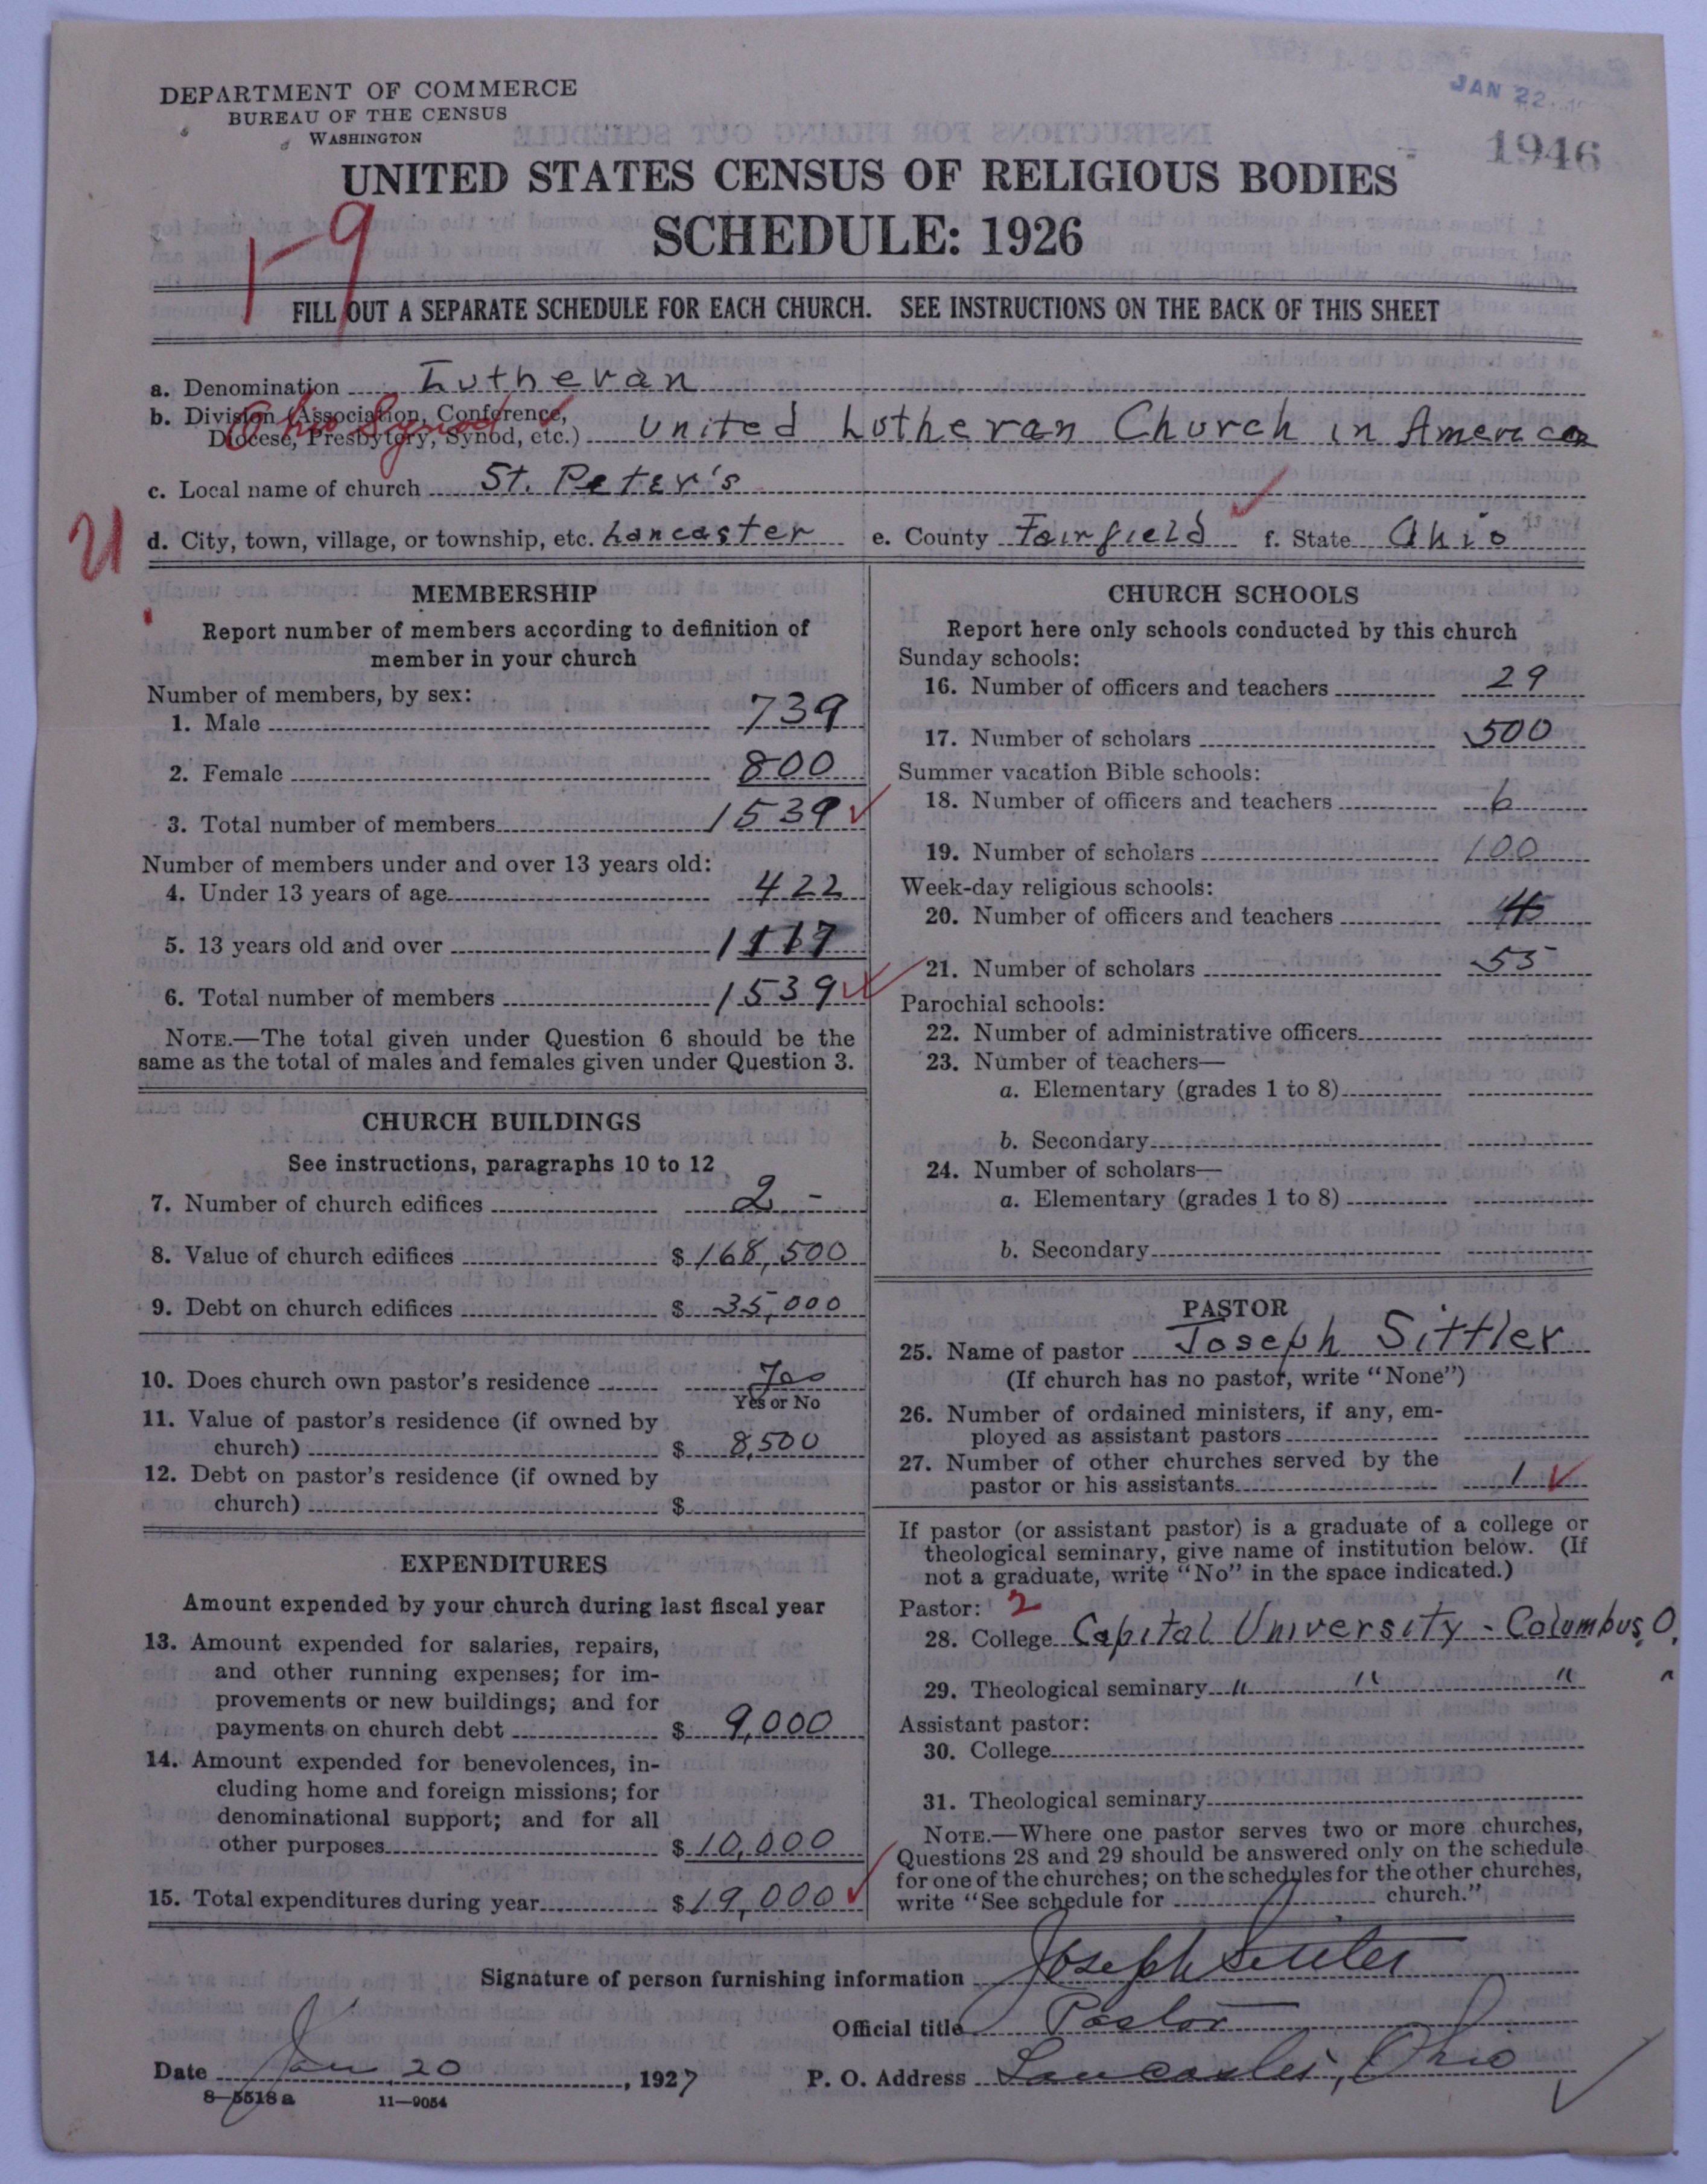 JAN 22
1946
DEPARTMENT OF COMMERCE
BUREAU OF THE CENSUS
WASHINGTON
UNITED STATES CENSUS OF RELIGIOUS BODIES
SCHEDULE: 1926
1-9
FILL OUT A SEPARATE SCHEDULE FOR EACH CHURCH. SEE INSTRUCTIONS ON THE BACK OF THIS SHEET
a. Denomination Lutheran
b. Division (Association, Conference,
Diocese, Presbytery, Synod, etc.) United Lutheran Church in America
Ohio Synod
c. Local name of church St. Peter's
U
d. City, town, village, or township, etc. Lancaster e. County Fairfield f. State Ohio
MEMBERSHIP
Report number of members according to definition of
member in your church
Number of members, by sex:
1. Male 739
2. Female 800
3. Total number of members 1539
Number of members under and over 13 years old:
4. Under 13 years of age 422
5. 13 years old and over 1117
6. Total number of members 1539
NOTE.—The total given under Question 6 should be the
same as the total of males and females given under Question 3.
CHURCH BUILDINGS
See instructions, paragraphs 10 to 12
7. Number of church edifices 2 -
8. Value of church edifices $ 168,500
9. Debt on church edifices $ 35,000
10. Does church own pastor's residence Yes
Yes or No
11. Value of pastor's residence (if owned by
church) $ 8,500
12. Debt on pastor's residence (if owned by
church) $
EXPENDITURES
Amount expended by your church during last fiscal year
13. Amount expended for salaries, repairs,
and other running expenses; for im-
provements or new buildings; and for
payments on church debt $ 9,000
14. Amount expended for benevolences, in-
cluding home and foreign missions; for
denominational support; and for all
other purposes $ 10,000
15. Total expenditures during year $ 19,000
CHURCH SCHOOLS
Report here only schools conducted by this church
Sunday schools:
16. Number of officers and teachers 29
17. Number of scholars 500
Summer vacation Bible schools:
18. Number of officers and teachers 6
19. Number of scholars 100
Week-day religious schools:
20. Number of officers and teachers
21. Number of scholars 55
Parochial schools:
22. Number of administrative officers
23. Number of teachers—
a. Elementary (grades 1 to 8)
b. Secondary
24. Number of scholars—
a. Elementary (grades 1 to 8)
b. Secondary
PASTOR
25. Name of pastor Joseph Sittler
(If church has no pastor, write "None")
26. Number of ordained ministers, if any, em-
ployed as assistant pastors
27. Number of other churches served by the
pastor or his assistants 1
If pastor (or assistant pastor) is a graduate of a college or
theological seminary, give name of institution below. (If
not a graduate, write "No" in the space indicated.)
Pastor: 2
28. College Capital University - Columbus, O.
29. Theological seminary " " " "
Assistant pastor:
30. College
31. Theological seminary
NOTE.—Where one pastor serves two or more churches,
Questions 28 and 29 should be answered only on the schedule
for one of the churches; on the schedules for the other churches,
write "See schedule for church."
Signature of person furnishing information Joseph Sittler
Official title Pastor
Date Jan 20, 1927 P. O. Address Lancaster, Ohio
8-5518 a 11-9054